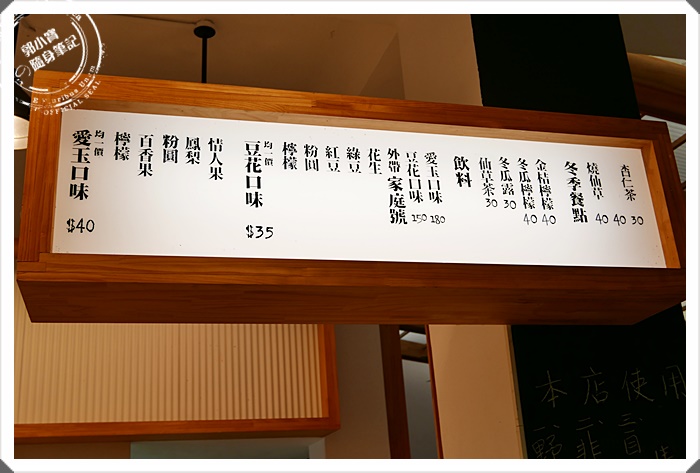 郭小寶
の隨身筆記
OFFICIAL SEAL
愛玉口味 $40
均一價
檸檬
百香果
粉圓
鳳梨
情人果
豆花口味 $35
均一價
檸檬
粉圓
紅豆
綠豆
花生
外帶家庭號
豆花口味 150
愛玉口味 180
飲料
仙草茶 30
冬瓜露 30
冬瓜檸檬 40
金桔檸檬 40
冬季餐點
燒仙草 40
40
杏仁茶 30
本店使用
野